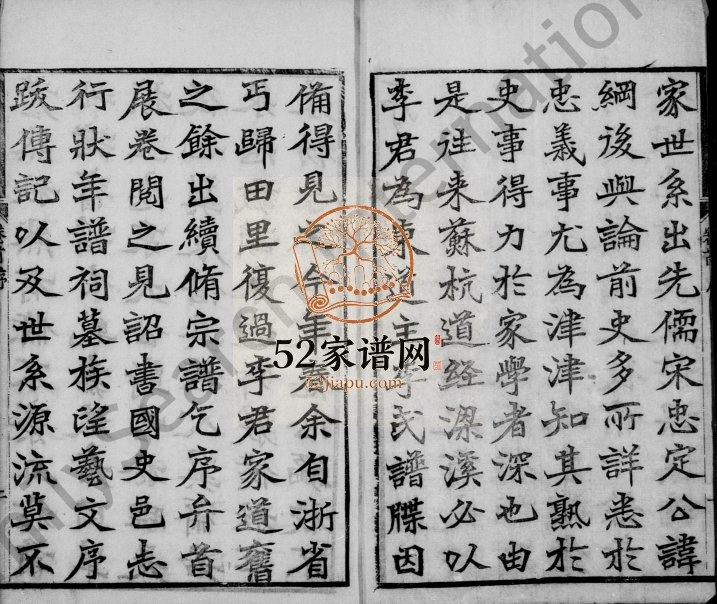 家世系出先儒宋忠定公諱
綱後與論前史多所詳悉於
忠義事尤為津津知其熟於
史事得力於家學者深也由
是往来蘇杭道経梁溪必以
李君為東道主李氏譜牒因
備得見之今年春余自浙省
丐歸田里復過李君家道舊
之餘出續脩宗譜乞序弁首
展卷閲之見詔書國史邑志
行狀年譜祠墓族望藝文序
跋傳記以及世系源流莫不
52家谱网
52jiapu.com